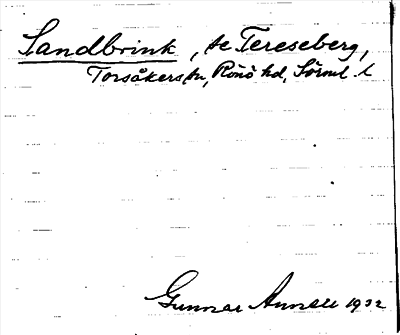 Sandbrink, se Tereseberg,
Torsåkers sn, Rönö hd, Sörml. l
Gunnar Annell 1932